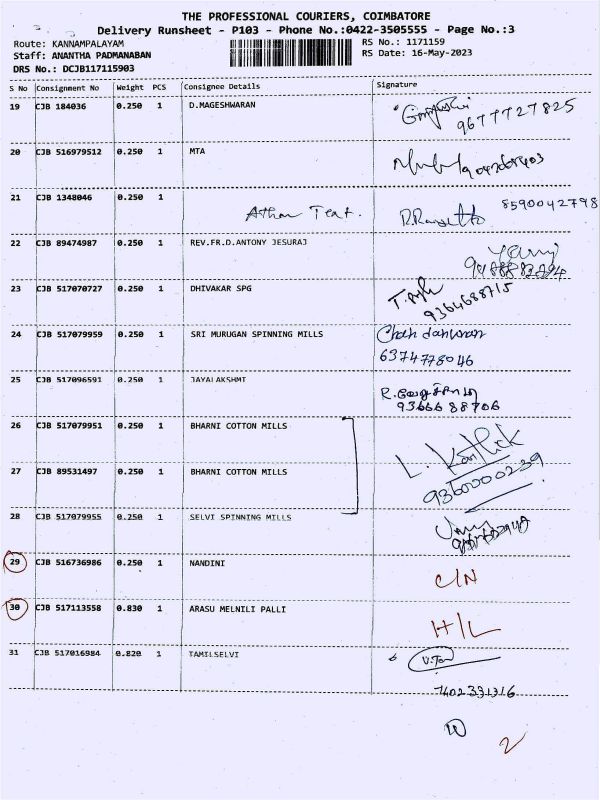 THE PROFESSIONAL COURIERS, COIMBATORE
Delivery Runsheet - P103 - Phone No.:0422-3505555 - Page No.:3
Route: KANNAMPALAYAM
RS No.: 1171159
Staff: ANANTHA PADMANABAN
RS Date: 16-May-2023
DRS No.: DCJB117115903
S No Consignment No Weight PCS Consignee Details Signature
19 CJB 184036 0.250 1 D.MAGESHWARAN
9677727825
20 CJB 516979512 0.250 1 MTA
21 CJB 1348046 0.250 1
8590042798
22 CJB 89474987 0.250 1 REV.FR.D.ANTONY JESURAJ
23 CJB 517070727 0.250 1 DHIVAKAR SPG
9364688715
24 CJB 517079959 0.250 1 SRI MURUGAN SPINNING MILLS
6374778046
25 CJB 517096591 0.250 1 JAYALAKSHMI
R.
93666 88706
26 CJB 517079951 0.250 1 BHARNI COTTON MILLS
L. Karthick
27 CJB 89531497 0.250 1 BHARNI COTTON MILLS
9360000239
28 CJB 517079955 0.250 1 SELVI SPINNING MILLS
29 CJB 516736986 0.250 1 NANDINI
C/N
30 CJB 517113558 0.830 1 ARASU MELNILI PALLI
H/L
31 CJB 517016984 0.820 1 TAMILSELVI
7402391316
10
2